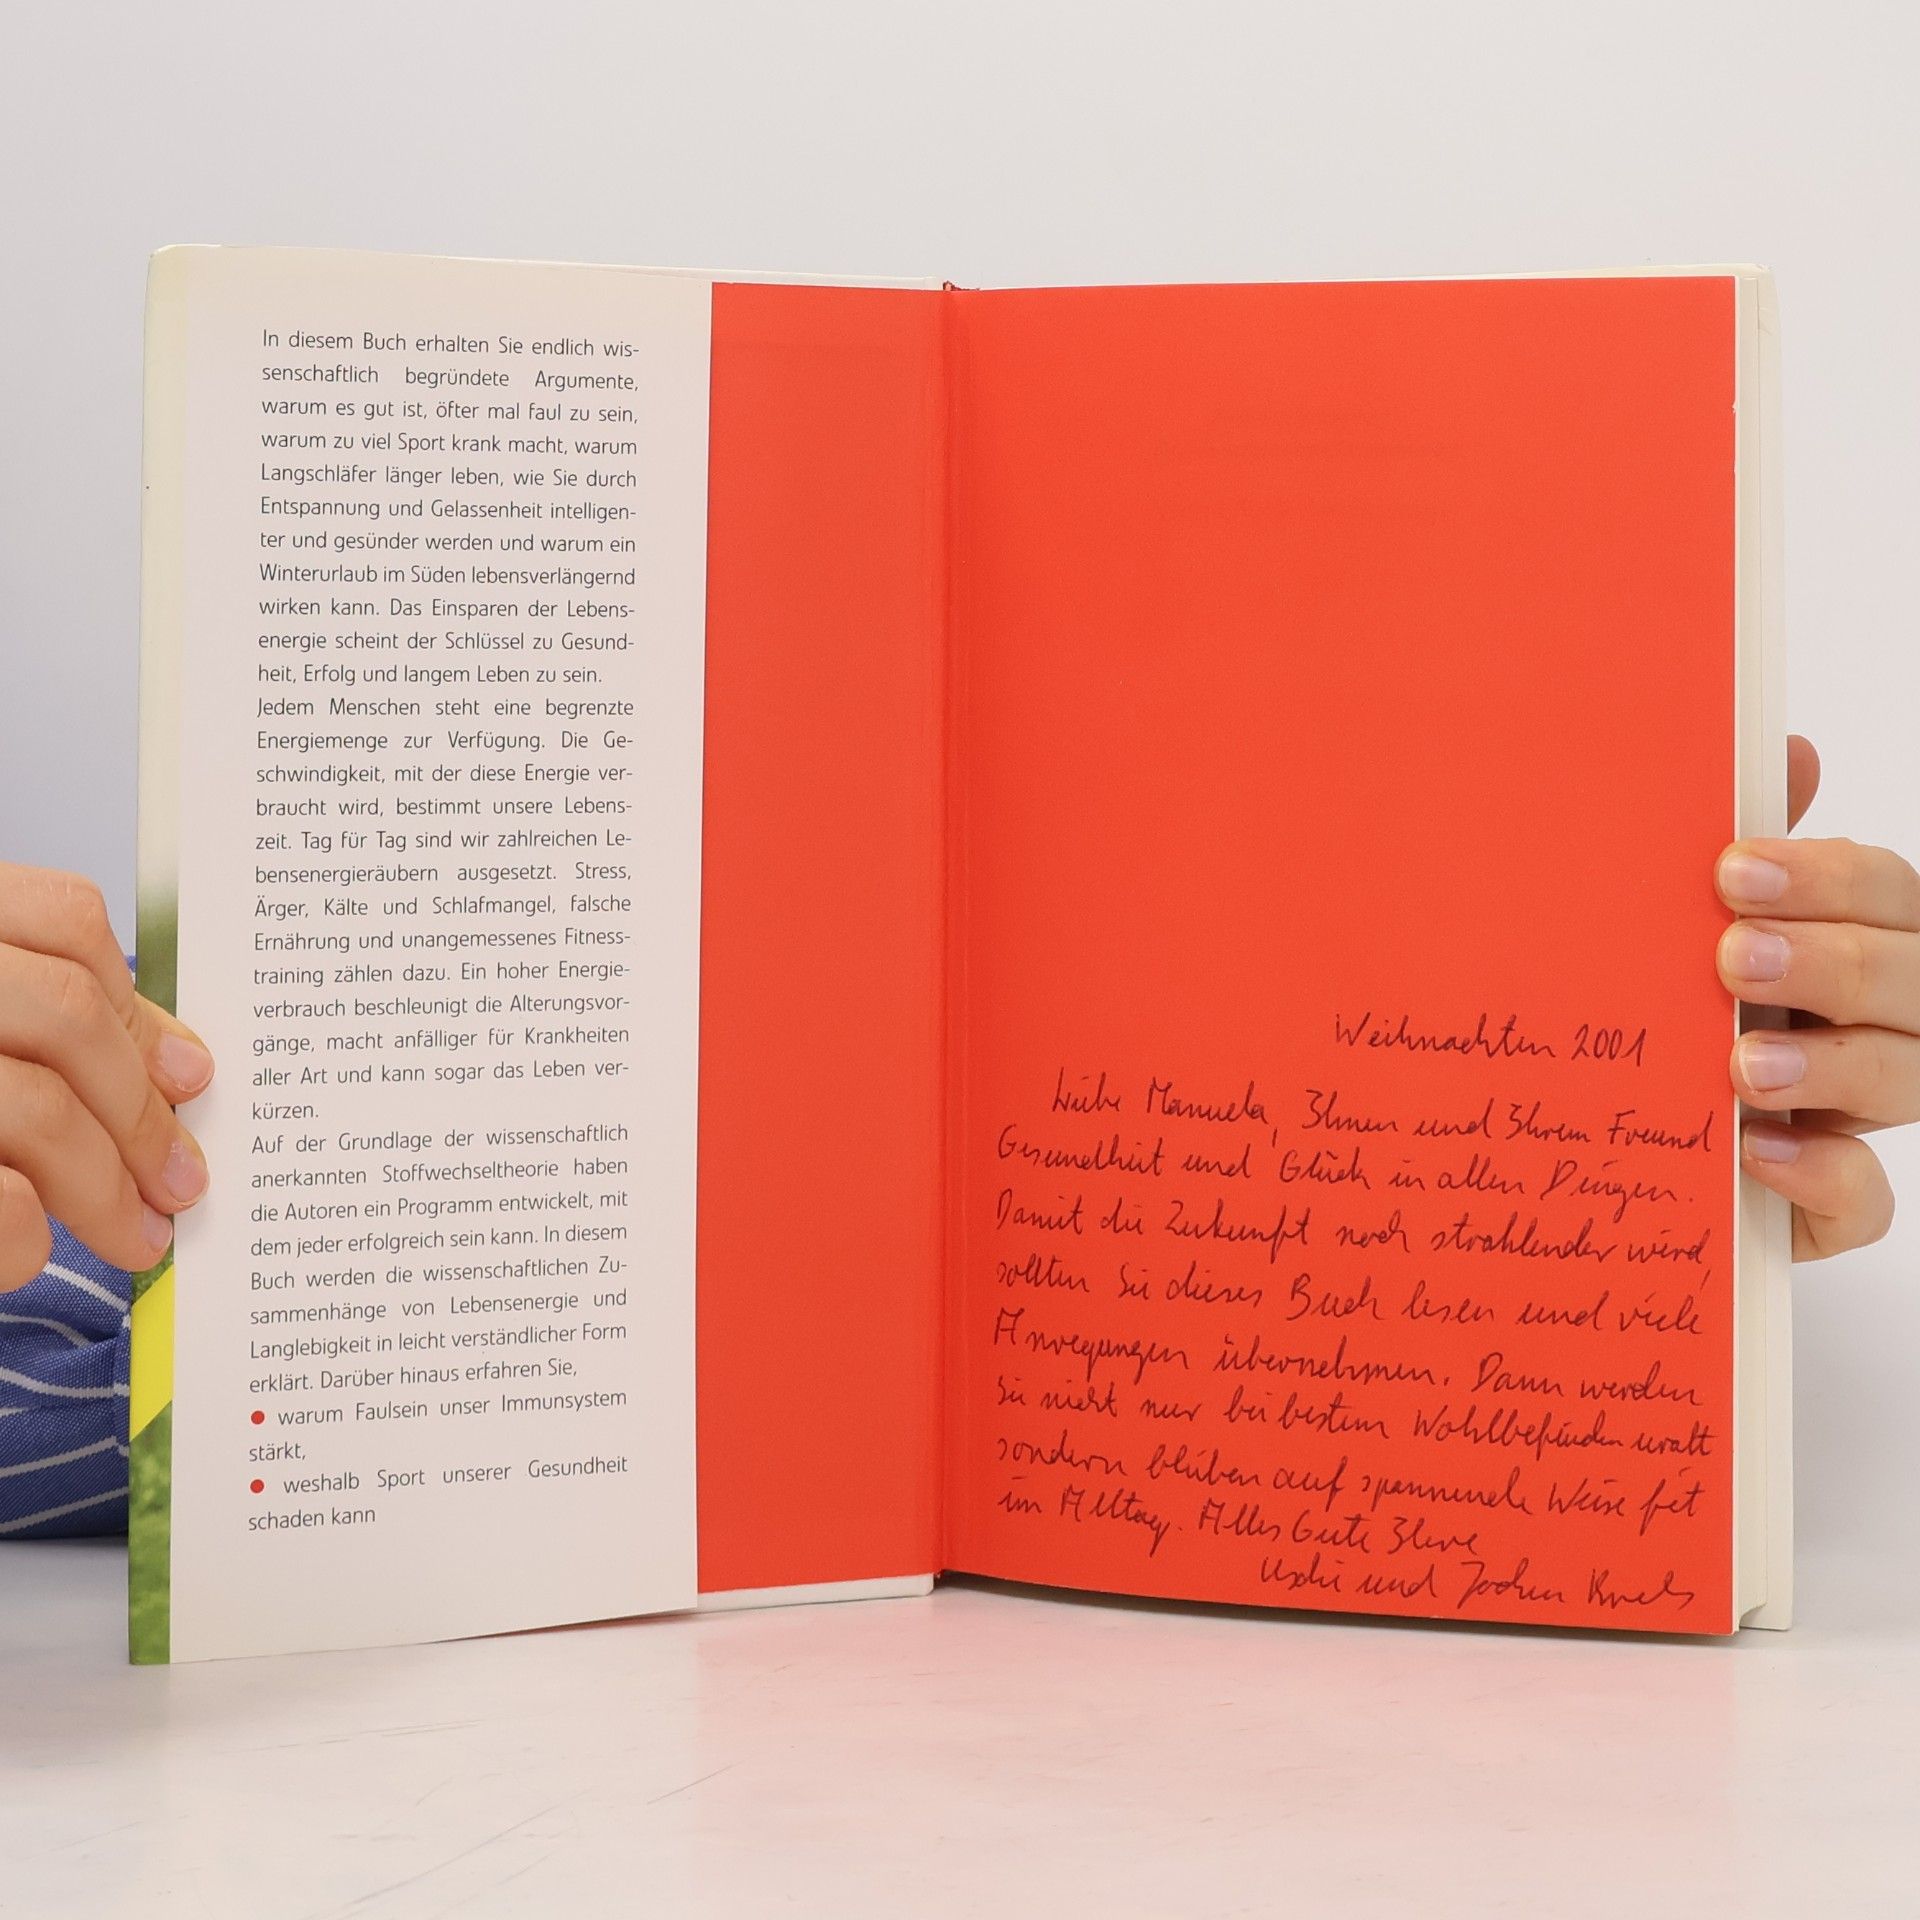 In diesem Buch erhalten Sie endlich wis-
senschaftlich begründete Argumente,
warum es gut ist, öfter mal faul zu sein,
warum zu viel Sport krank macht, warum
Langschläfer länger leben, wie Sie durch
Entspannung und Gelassenheit intelligen-
ter und gesünder werden und warum ein
Winterurlaub im Süden lebensverlängernd
wirken kann. Das Einsparen der Lebens-
energie scheint der Schlüssel zu Gesund-
heit, Erfolg und langem Leben zu sein.
Jedem Menschen steht eine begrenzte
Energiemenge zur Verfügung. Die Ge-
schwindigkeit, mit der diese Energie ver-
braucht wird, bestimmt unsere Lebens-
zeit. Tag für Tag sind wir zahlreichen Le-
bensenergieräubern ausgesetzt. Stress,
Ärger, Kälte und Schlafmangel, falsche
Ernährung und unangemessenes Fitness-
training zählen dazu. Ein hoher Energie-
verbrauch beschleunigt die Alterungsvor-
gänge, macht anfälliger für Krankheiten
aller Art und kann sogar das Leben ver-
kürzen.
Auf der Grundlage der wissenschaftlich
anerkannten Stoffwechseltheorie haben
die Autoren ein Programm entwickelt, mit
dem jeder erfolgreich sein kann. In diesem
Buch werden die wissenschaftlichen Zu-
sammenhänge von Lebensenergie und
Langlebigkeit in leicht verständlicher Form
erklärt. Darüber hinaus erfahren Sie,
● warum Faulsein unser Immunsystem
stärkt,
● weshalb Sport unserer Gesundheit
schaden kann
Weihnachten 2001
Liebe Manuela, Ihnen und Ihrem Freund
Gesundheit und Glück in allen Dingen.
Damit die Zukunft noch strahlender wird,
sollten Sie dieses Buch lesen und viele
Anregungen übernehmen. Dann werden
Sie nicht nur bei bestem Wohlbefinden uralt
sondern bleiben auf spannende Weise fit
im Alltag. Alles Gute Ihre
und Jochen